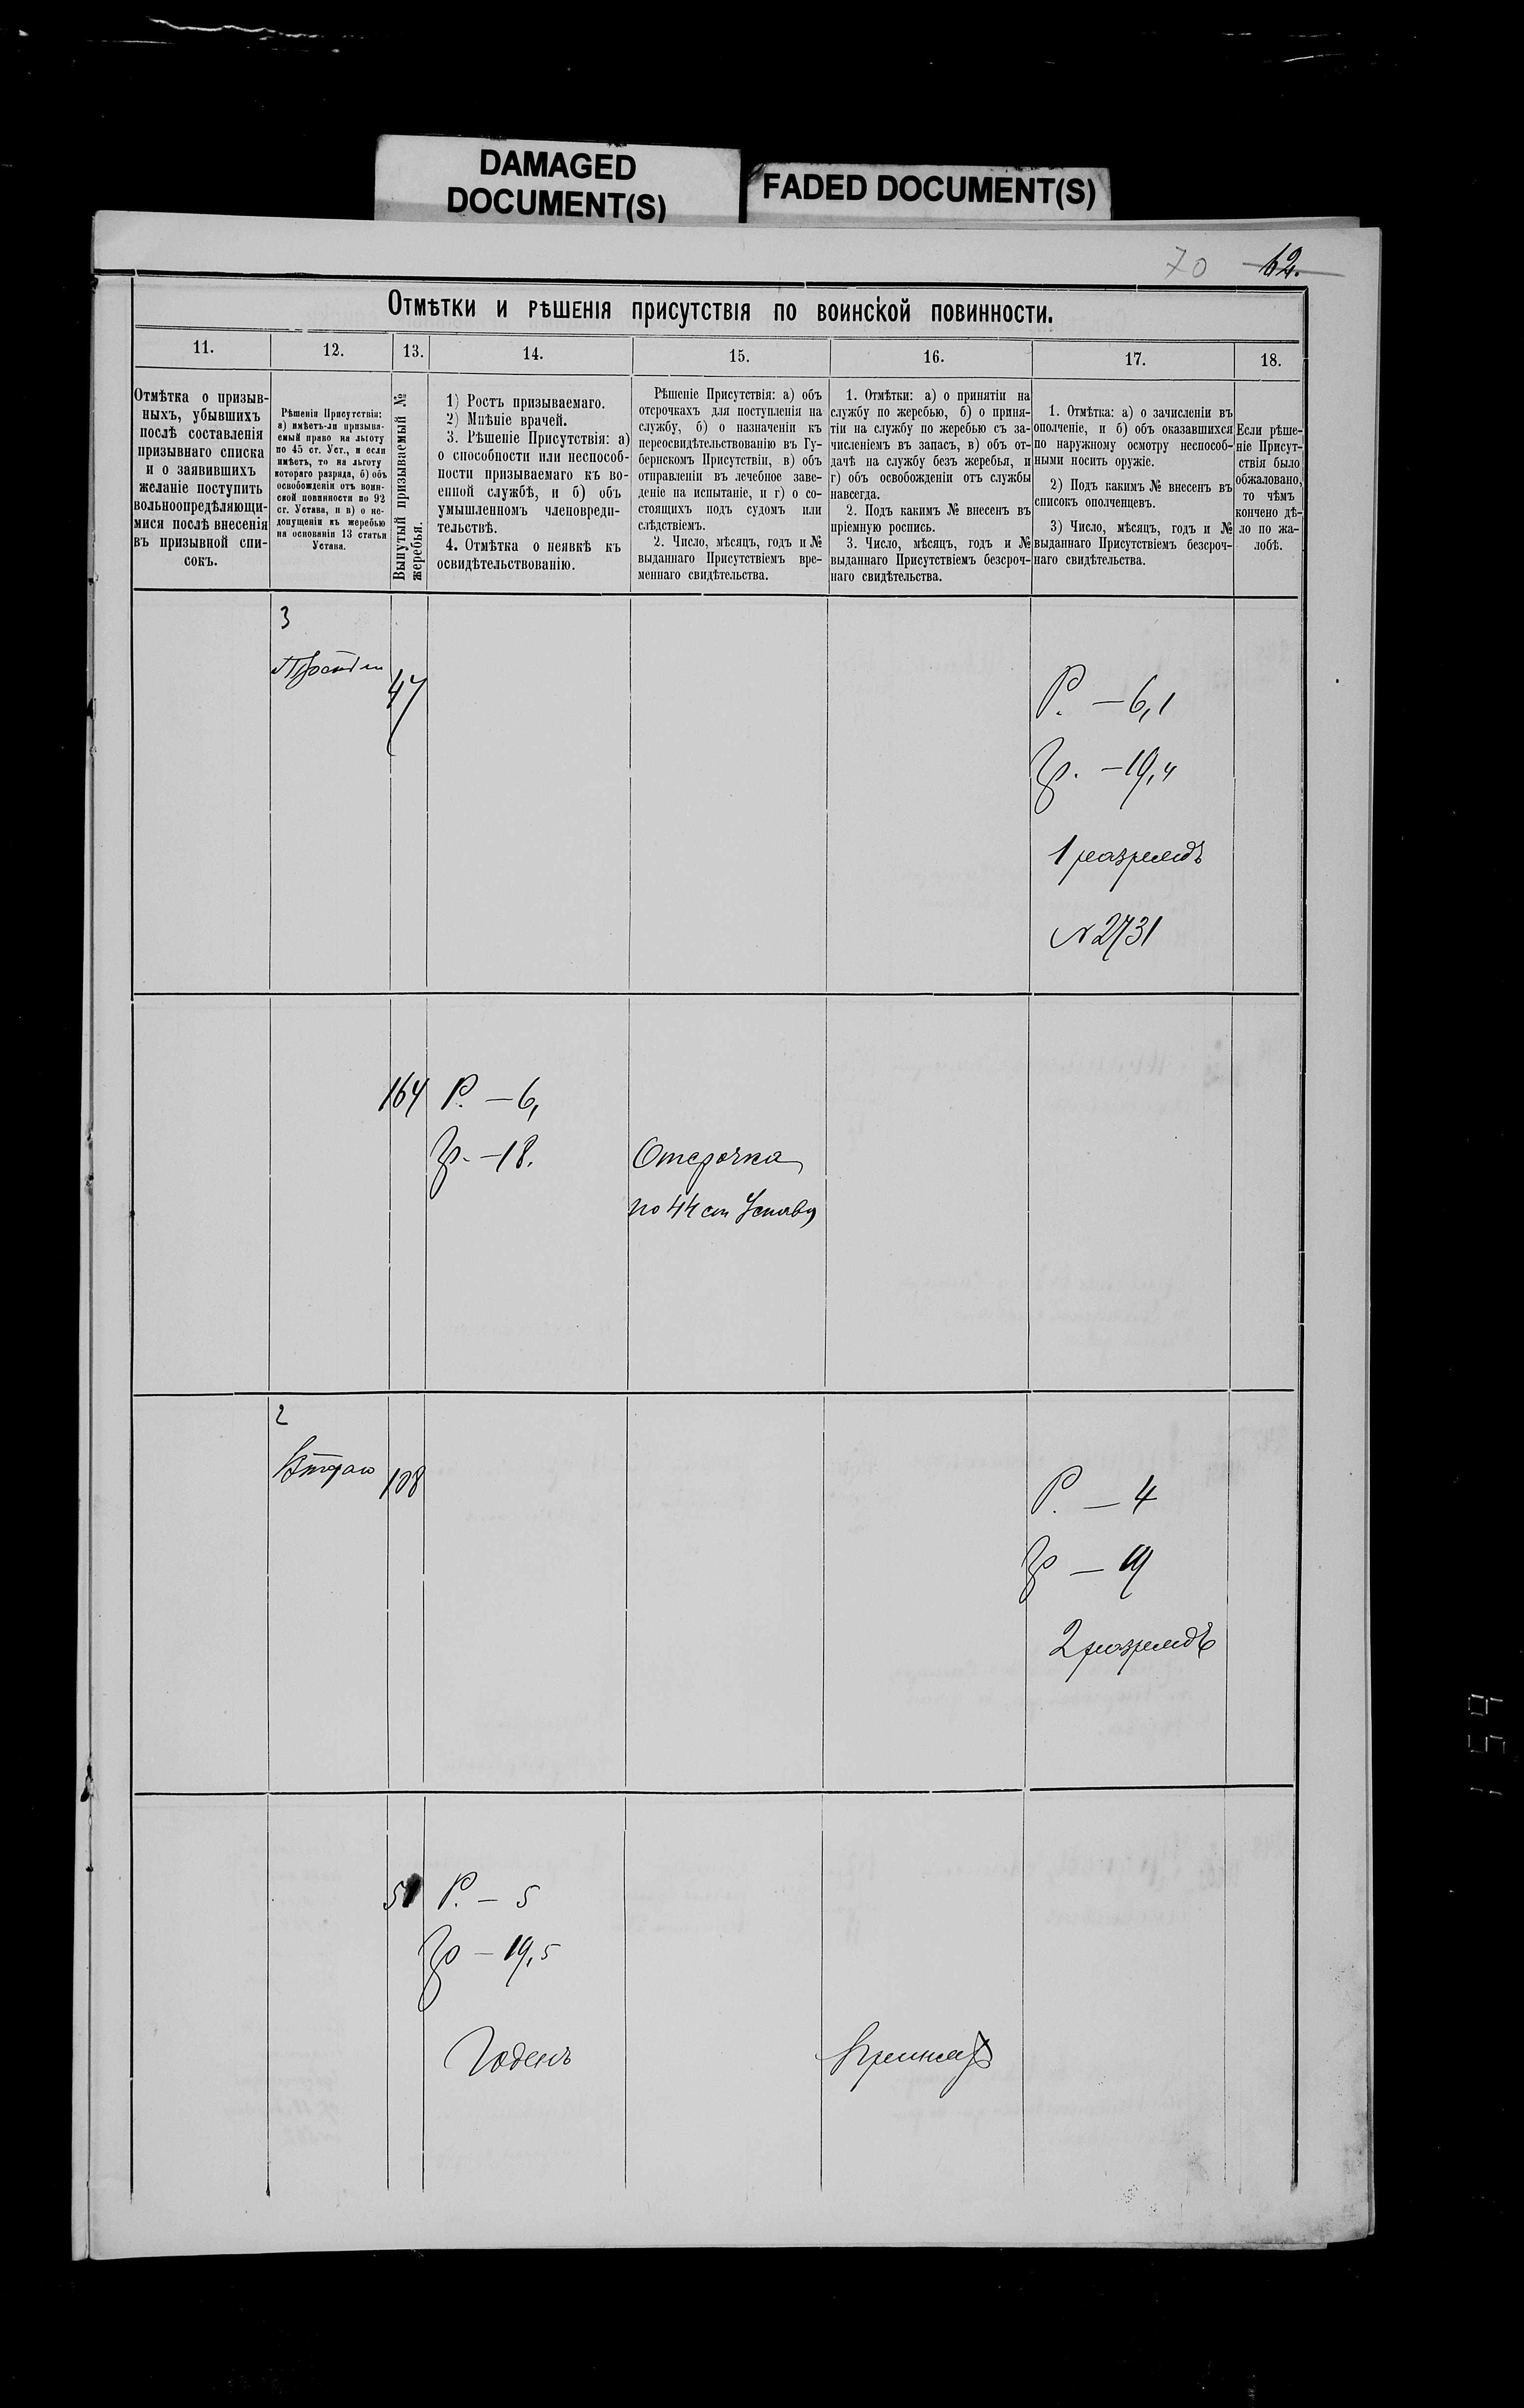 DAMAGED
DOCUMENT(S)
FADED DOCUMENT(S)
70 62.
Отмѣтки и рѣшенія присутствія по воинской повинности.
11.
12.
13.
14.
15.
16.
17.
18.
Отмѣтка о призыв-
ныхъ, убывшихъ
послѣ составленія
призывнаго списка
и о заявившихъ
желаніе поступить
вольноопредѣляющи-
мися послѣ внесенія
въ призывной спи-
сокъ.
Рѣшенія Присутствія:
а) имѣетъ-ли призыва-
емый право на льготу
по 45 ст. Уст., и если
имѣетъ, то на льготу
котораго разряда, б) объ
освобожденіи отъ воин-
ской повинности по 92
ст. Устава, и в) о не-
допущеніи къ жеребью
на основаніи 13 статьи
Устава.
Вынутый призываемый №
жеребья.
1) Ростъ призываемаго.
2) Мнѣніе врачей.
3. Рѣшеніе Присутствія: а)
о способности или неспособ-
ности призываемаго къ во-
енной службѣ, и б) объ
умышленномъ членовреди-
тельствѣ.
4. Отмѣтка о неявкѣ къ
освидѣтельствованію.
Рѣшеніе Присутствія: а) объ
отсрочкахъ для поступленія на
службу, б) о назначеніи къ
переосвидѣтельствованію въ Гу-
бернскомъ Присутствіи, в) объ
отправленіи въ лечебное заве-
деніе на испытаніе, и г) о со-
стоящихъ подъ судомъ или
слѣдствіемъ.
2. Число, мѣсяцъ, годъ и №
выданнаго Присутствіемъ вре-
меннаго свидѣтельства.
1. Отмѣтки: а) о принятіи на
службу по жеребью, б) о приня-
тіи на службу по жеребью съ за-
численіемъ въ запасъ, в) объ от-
дачѣ на службу безъ жеребья, и
г) объ освобожденіи отъ службы
навсегда.
2. Подъ какимъ № внесенъ въ
пріемную роспись.
3. Число, мѣсяцъ, годъ и №
выданнаго Присутствіемъ безсроч-
наго свидѣтельства.
1. Отмѣтка: а) о зачисленіи въ
ополченіе, и б) объ оказавшихся
по наружному осмотру неспособ-
ными носить оружіе.
2) Подъ какимъ № внесенъ въ
списокъ ополченцевъ.
3) Число, мѣсяцъ, годъ и №
выданнаго Присутствіемъ безсроч-
наго свидѣтельства.
Если рѣше-
ніе Присут-
ствія было
обжаловано,
то чѣмъ
кончено дѣ-
ло по жа-
лобѣ.
3
47
Р. — 6,1
Гр. — 19,4
1 разрядъ
№ 2731
164
Р. — 6,
Гр. — 18.
Отсрочка
по 44 ст Устава
2
Втораго
108
Р. — 4
Гр — 19
2 разрядъ
51
Р. — 5
Гр — 19,5
Годенъ
Принятъ
159